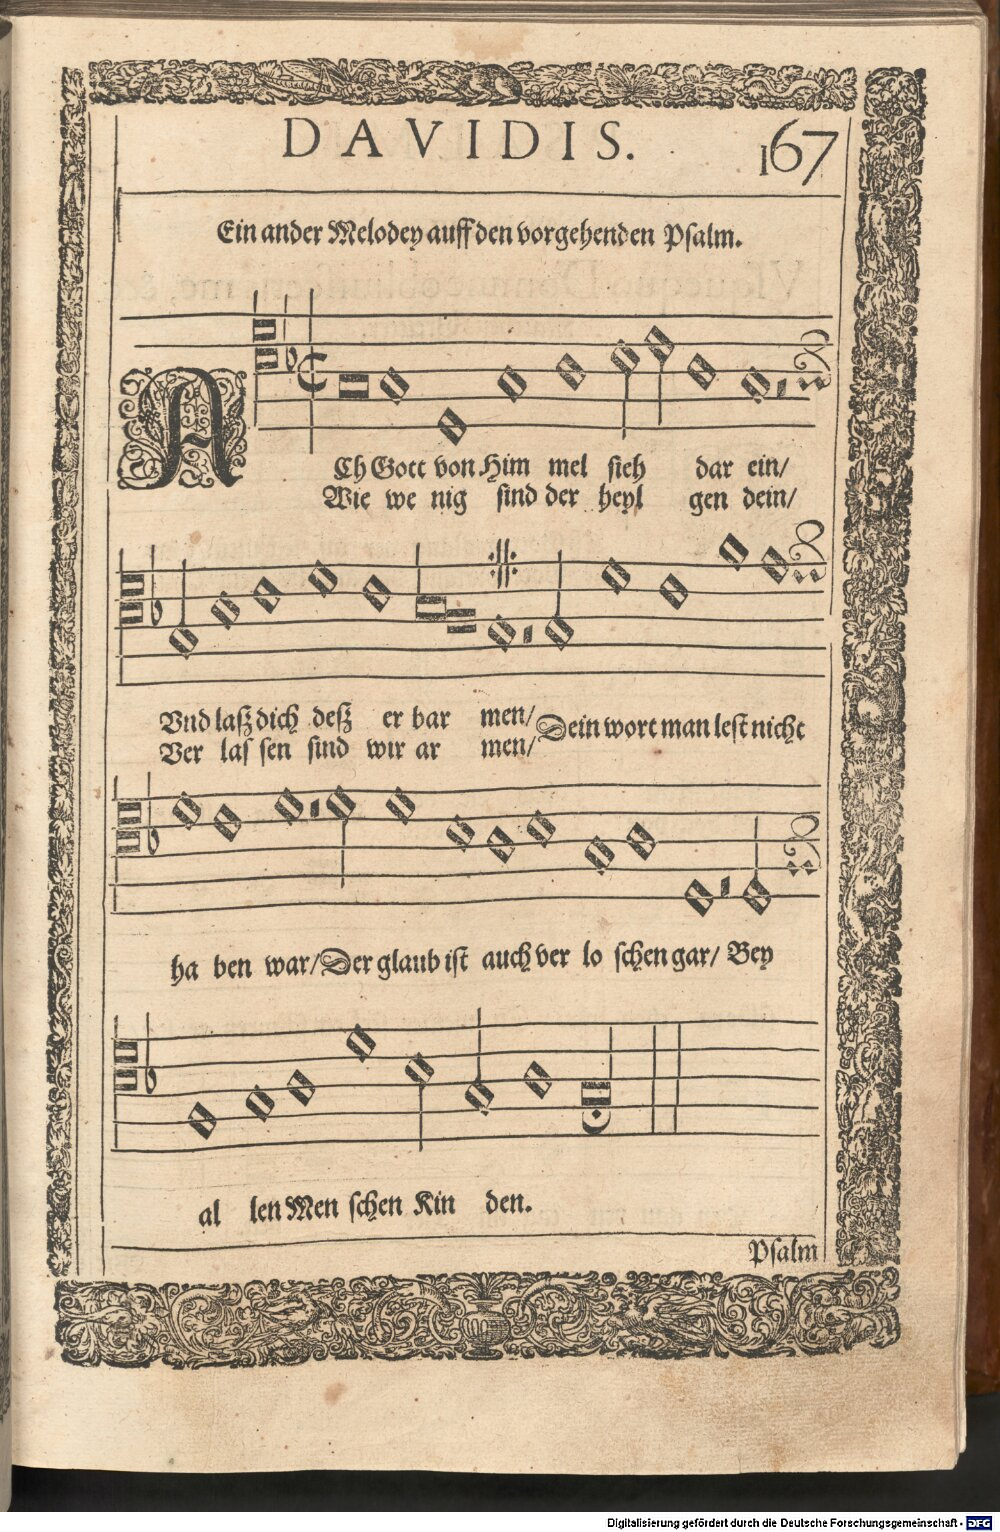 DAVIDIS. 167
Ein ander Melodey auff den vorgehenden Psalm.
ACh Gott von Him mel sieh dar ein/
Wie we nig sind der heyl gen dein/
Vnd lasz dich desz er bar men/ Dein wort man lest nicht
Ver las sen sind wir ar men/
ha ben war/ Der glaub ist auch ver lo schen gar/ Bey
al len Men schen Kin den.
Psalm
Digitalisierung gefördert durch die Deutsche Forschungsgemeinschaft - DFG